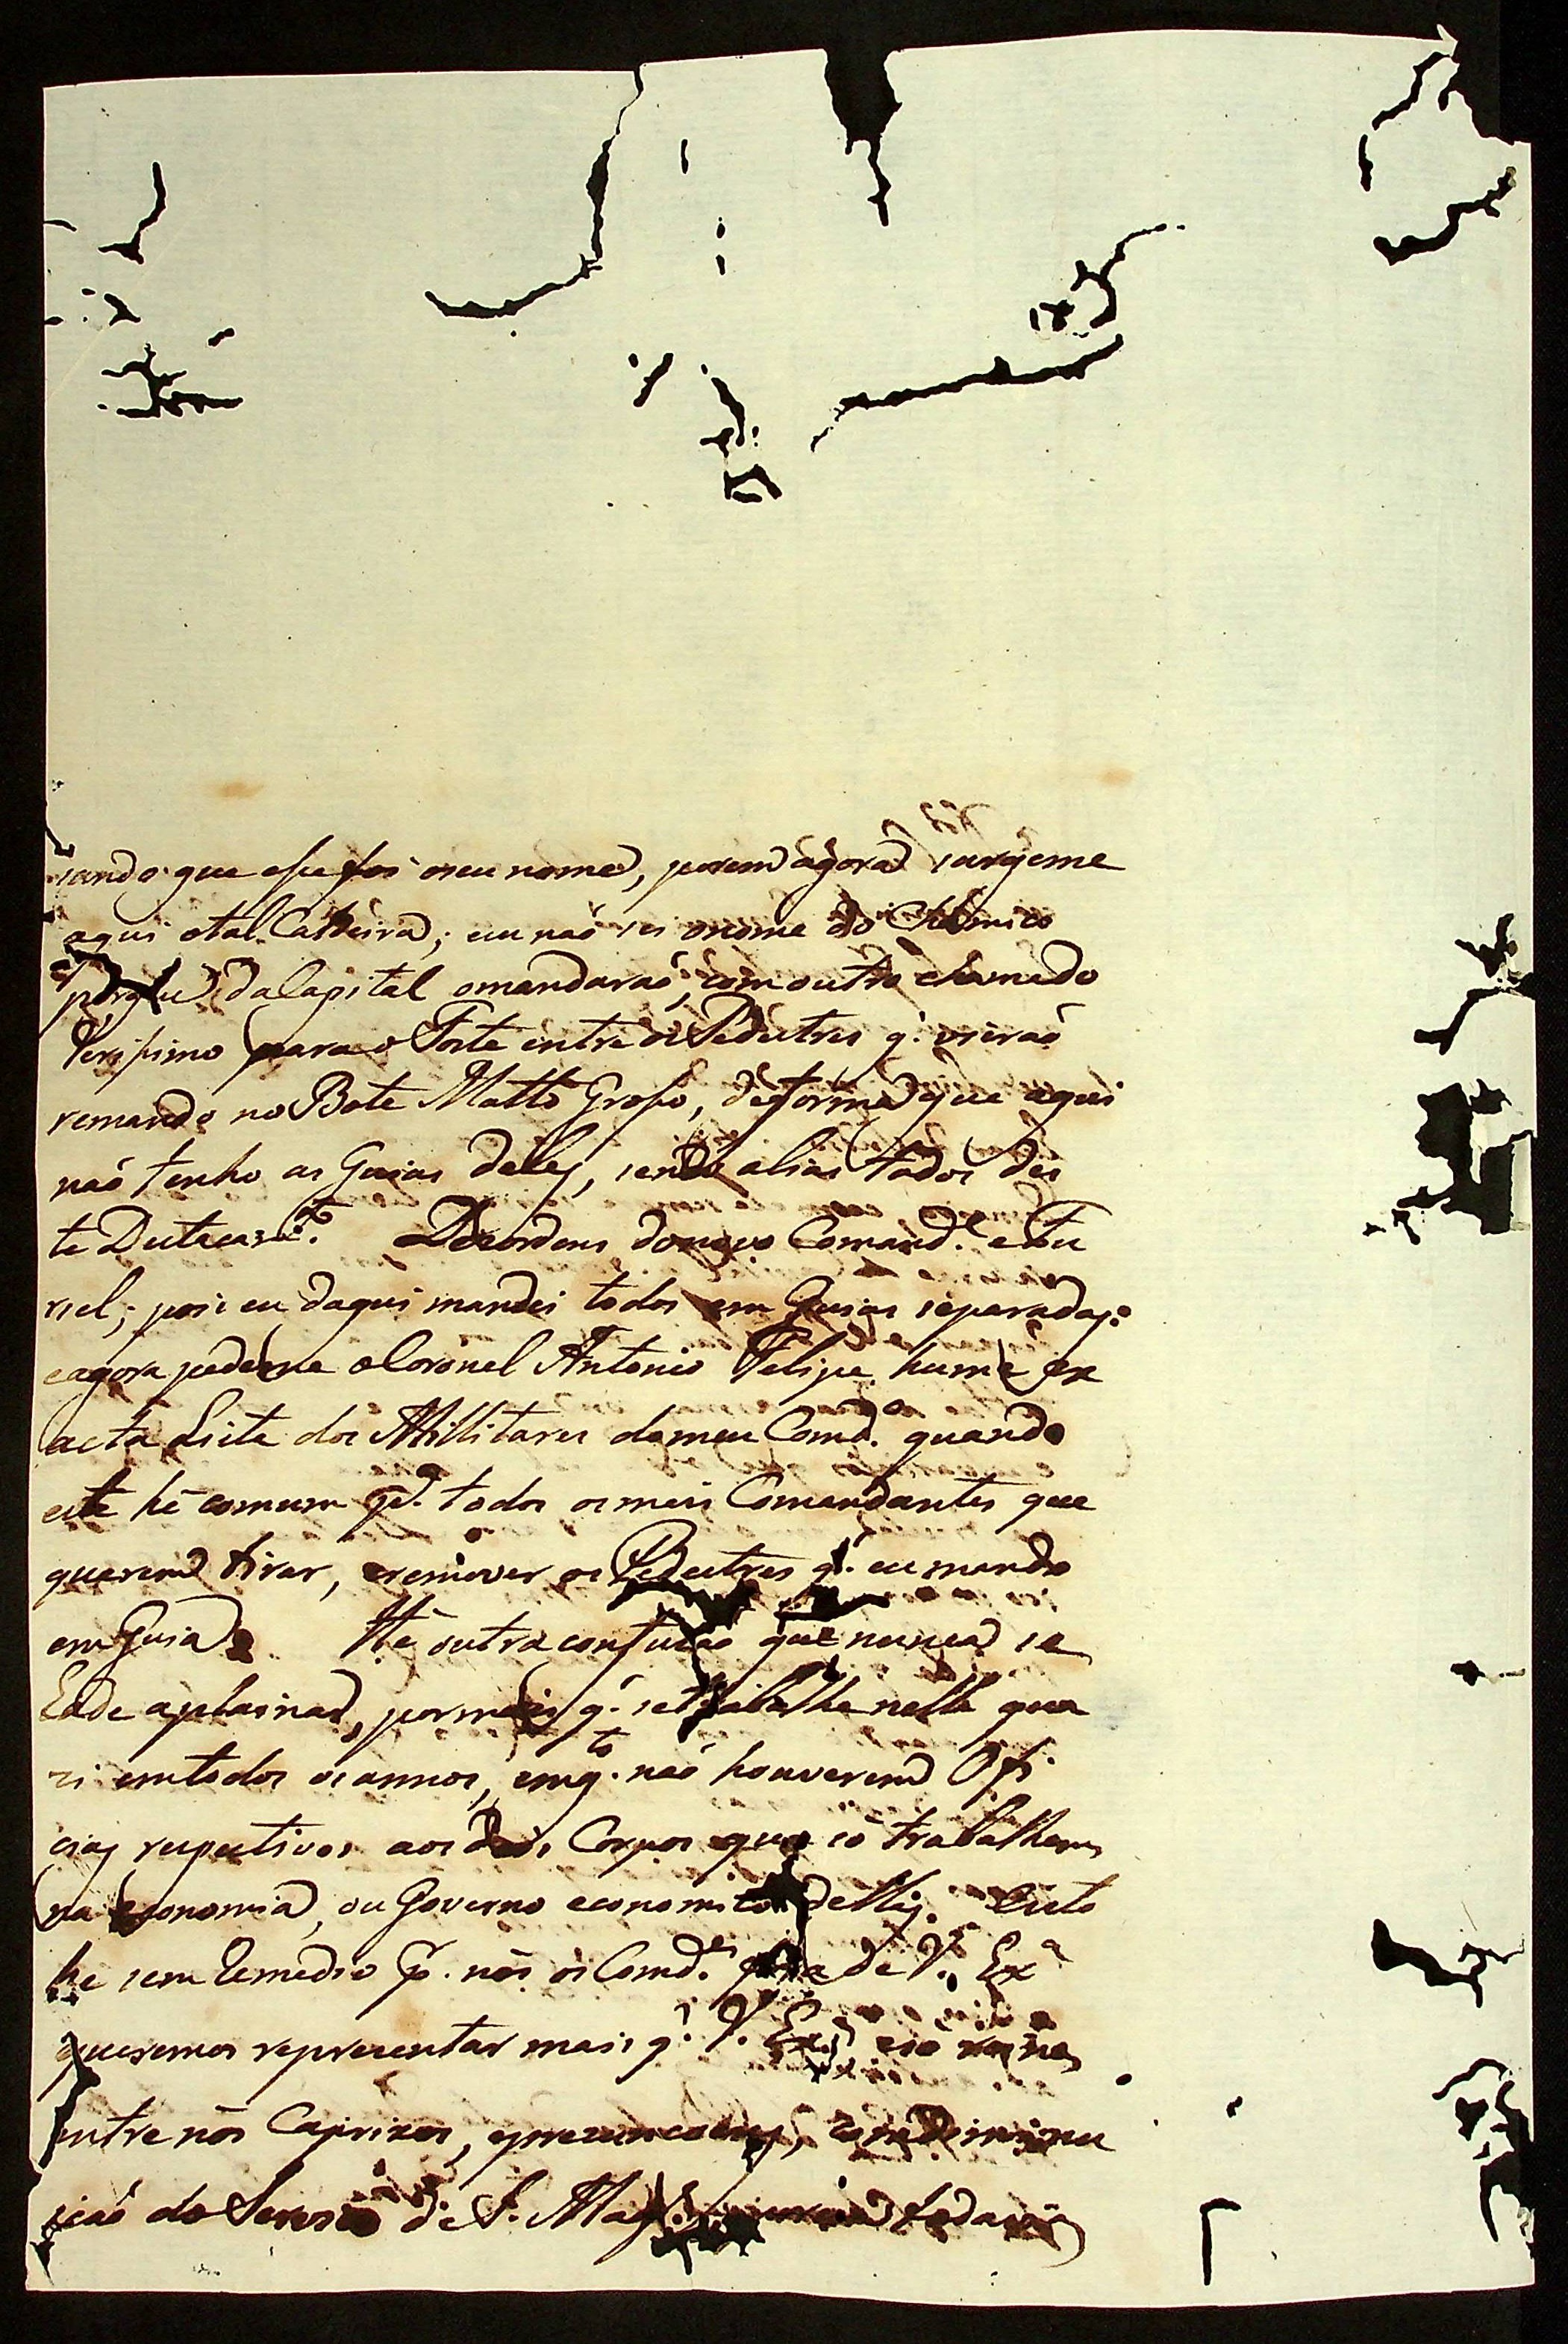 sando que esse foi o seu nome, porem agora surgeme
aqui otal Catheira; eu não sei onome do Chimico
porque da Capital omandaraõ, com outro chamado
Verissimo para o Forte entre os Pedestres q. vieraõ
remando no Bote Matto Grosso, de forma que aqui
não tenho as Guias deles, sendo alias todos des
te Destacam.to. Dezordens do novo Comand.e e Fu
riel; pois eu daqui mandei todos em Guias separadas:
e agora pedeme o Coronel Antonio Felipe huma ex
acta Lista dos Millitares do meu Com.do quando
esta hé comum p.a todos os mais Comandantes que
querem tirar, e remover os Pedestres q. eu mando
em Guia. Hé outra confuzaõ que nunca se
hade aplainar, por mais q. se trabalhe nella qua
zi em todos os annos, em q.to não houverem Ofi
ciaes respectivos aos dois Corpos que só trabalhem
na economia, ou Governo economico delles. Isto
he sem remedio p. nós os Com.des de V. Ex.a
queremos representar mais q. V. Ex.a e só reina
entre nós Caprixos, com diminu
içaõ do Servico de S. Mag.e todavia